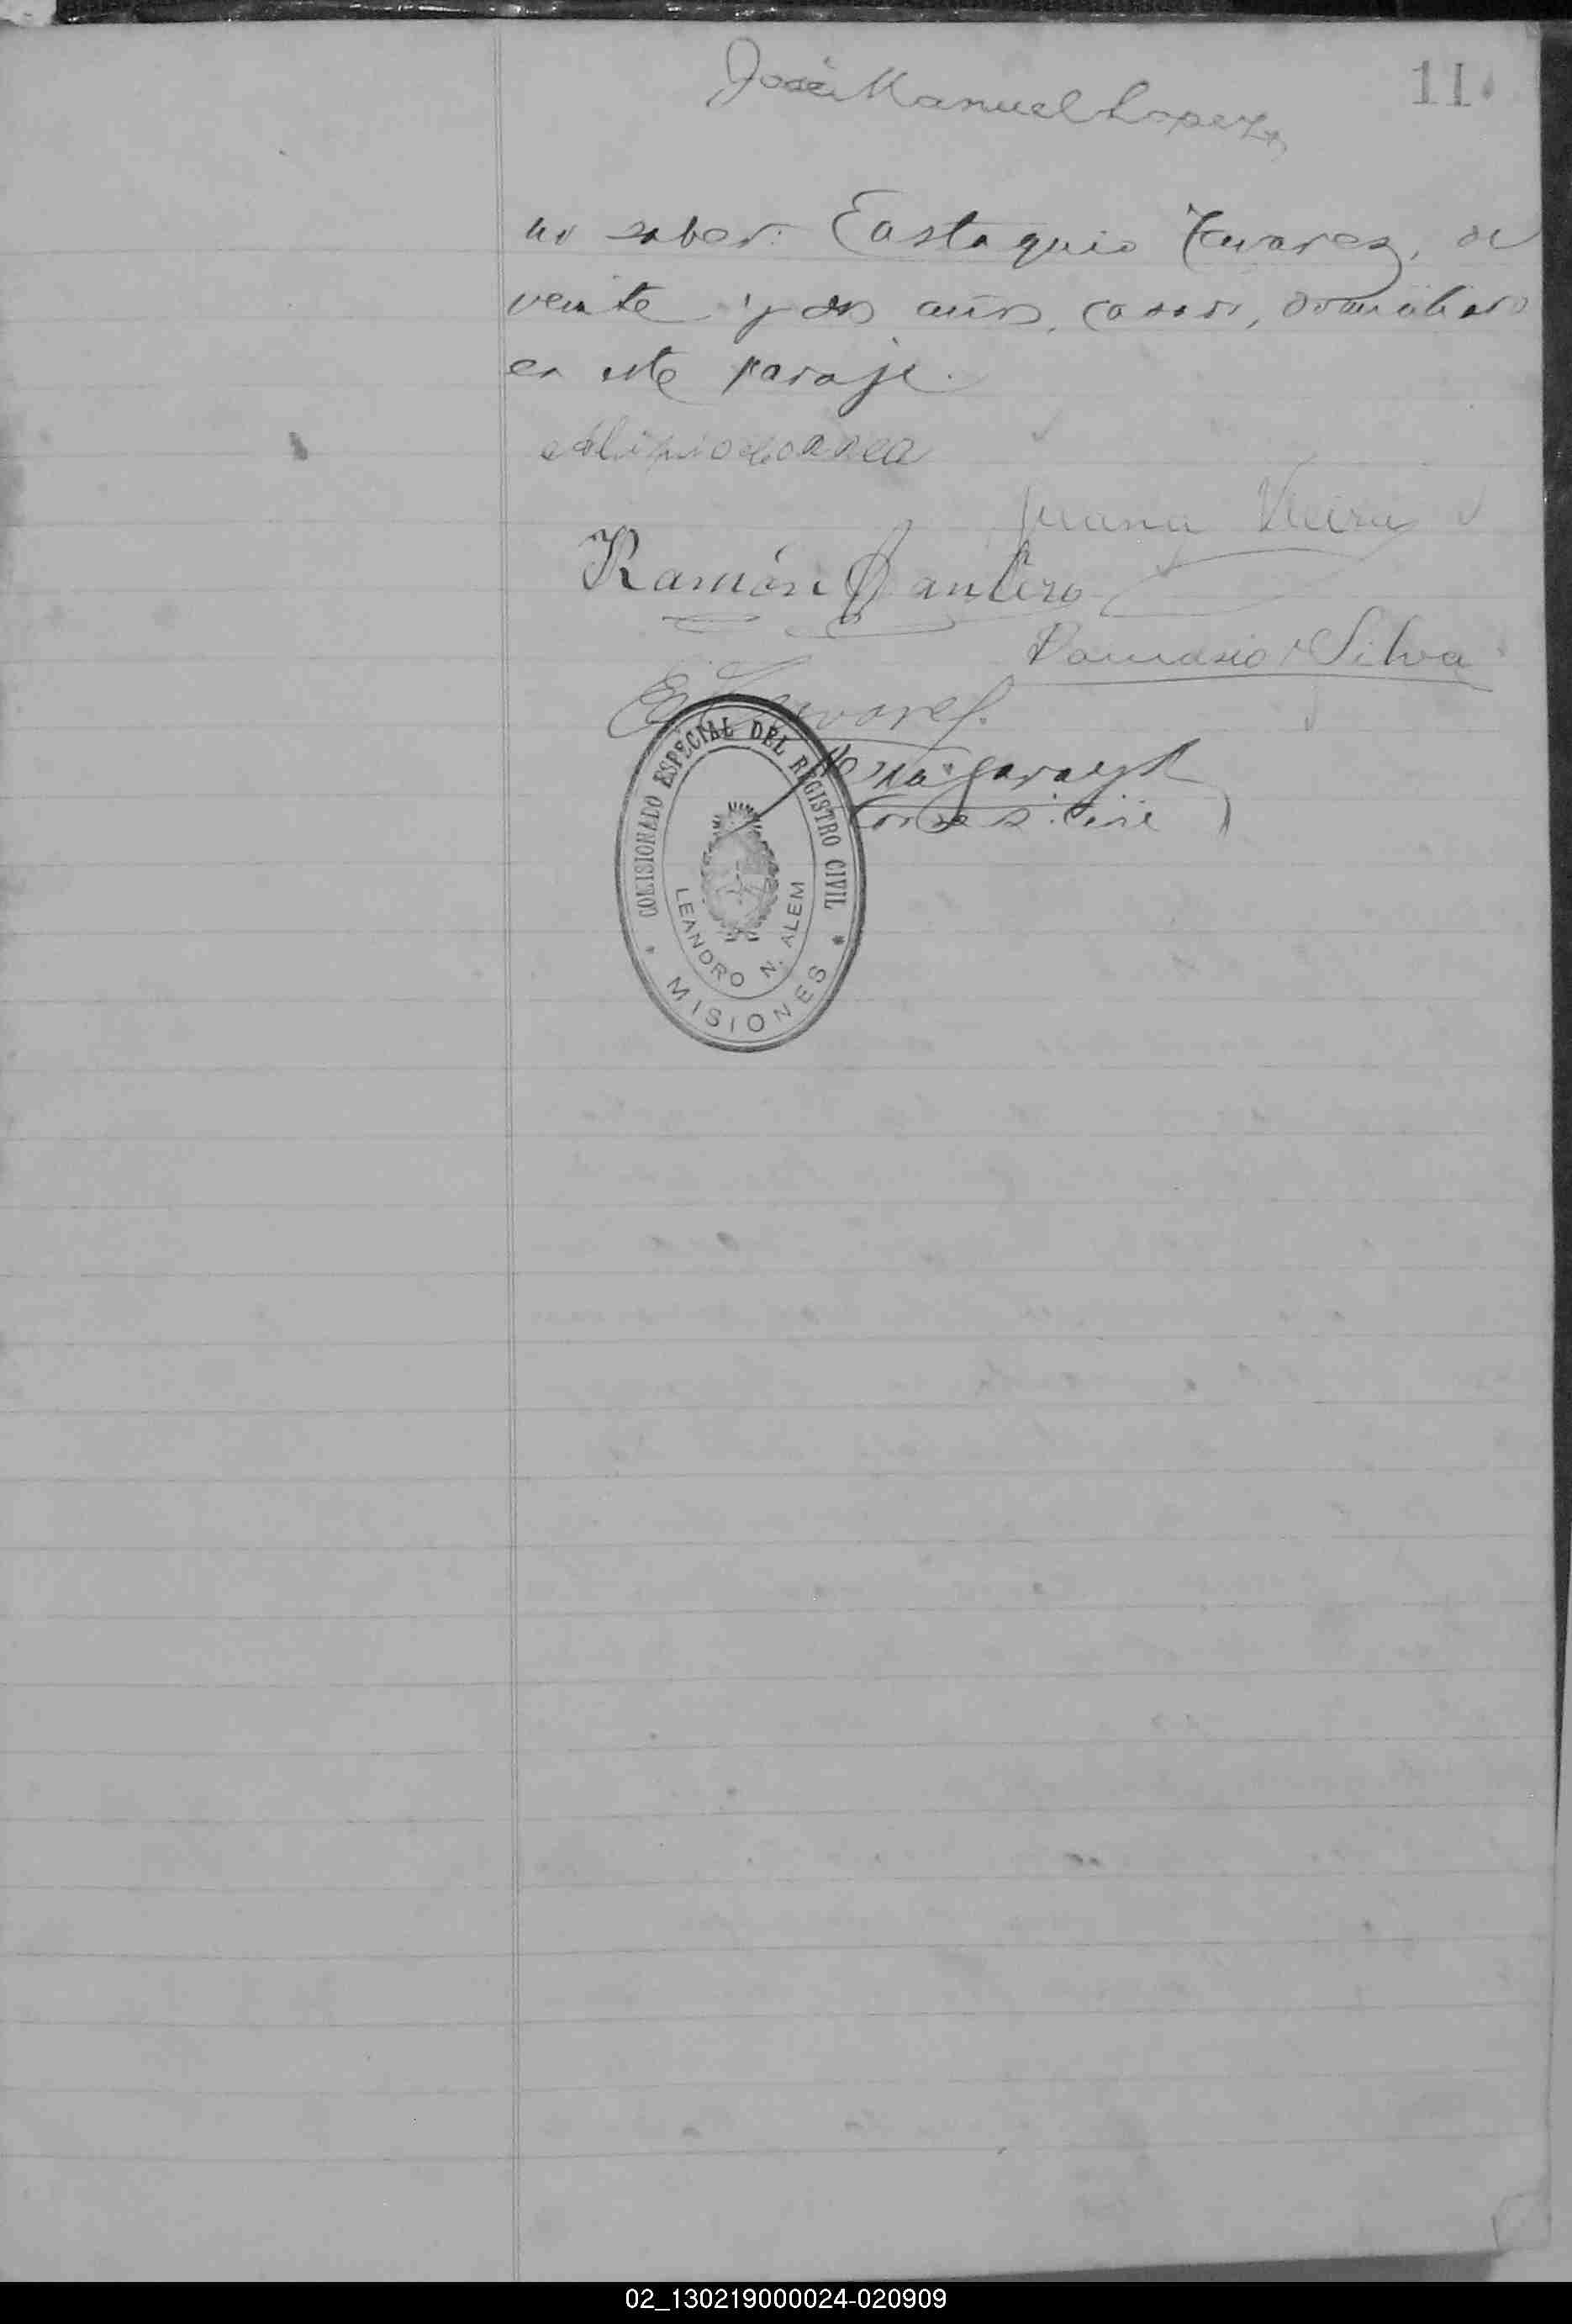 11
José Manuel Lopez
no saber: Eustaquio Tavarez, de
veinte y dos años, casado, domiciliado
en este paraje.
Juana Vieira
Ramón Santero
Damasio Silva
E. Tavarez.
COMISIONADO ESPECIAL DEL REGISTRO CIVIL
LEANDRO N. ALEM
* MISIONES *
02_130219000024-020909